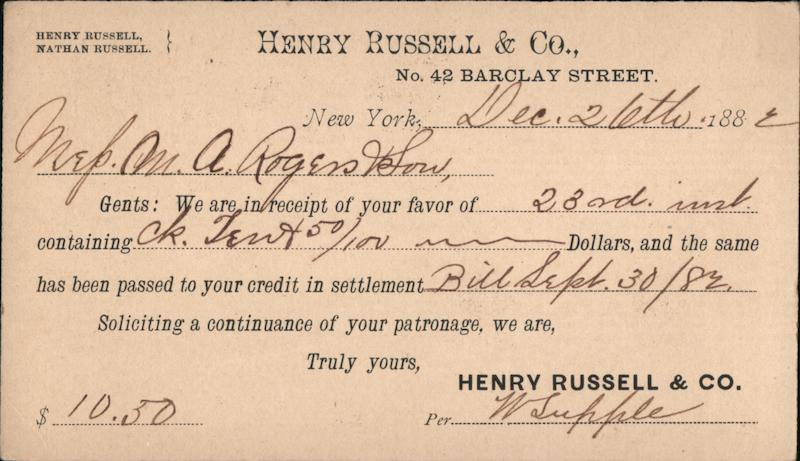 HENRY RUSSELL,
NATHAN RUSSELL.
HENRY RUSSELL & CO.,
No. 42 BARCLAY STREET.
New York, Dec. 26th. 1882
Mess. M. A. Rogers & Son,
Gents: We are in receipt of your favor of 23rd. inst.
containing Ck. Ten & 50/100 Dollars, and the same
has been passed to your credit in settlement Bill Sept. 30/82.
Soliciting a continuance of your patronage, we are,
Truly yours,
HENRY RUSSELL & CO.
$ 10.50 Per W Supple